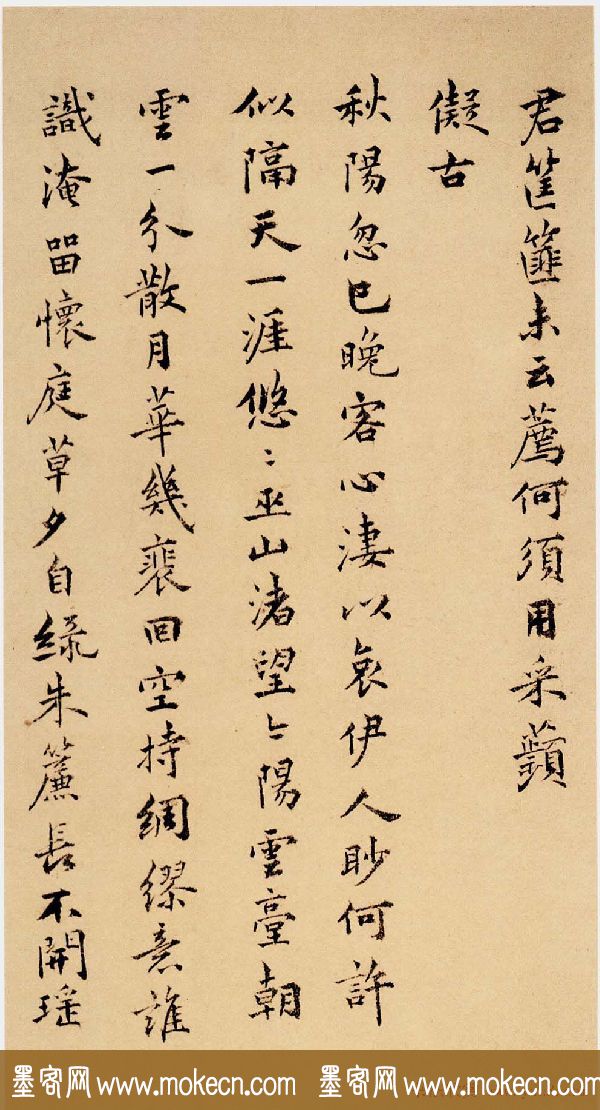 君筐篚未云薦何須用采蘋
儗古
秋陽忽已晚客心淒以哀伊人眇何許
似隔天一涯悠〻巫山渚望〻陽雲臺朝
雲一分散月華幾裴回空持綢繆意誰
識淹留懷庭草夕自綠朱簾長不開瑶
墨客网 www.mokecn.com 墨客网 www.mokecn.com